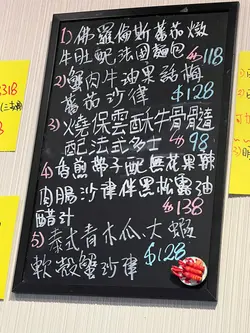 1) 佛羅倫斯蕃茄燉
牛肚配法國麵包 $118
2) 蟹肉牛油果話梅
蕃茄沙律 $128
3) 燒保雲酥牛骨骨髓
配法式多士 $98
4) 香煎帶子配無花果辣
肉腸沙律伴黑松露油
醋汁 $138
5) 泰式青木瓜、大蝦
軟殼蟹沙律 $128
318